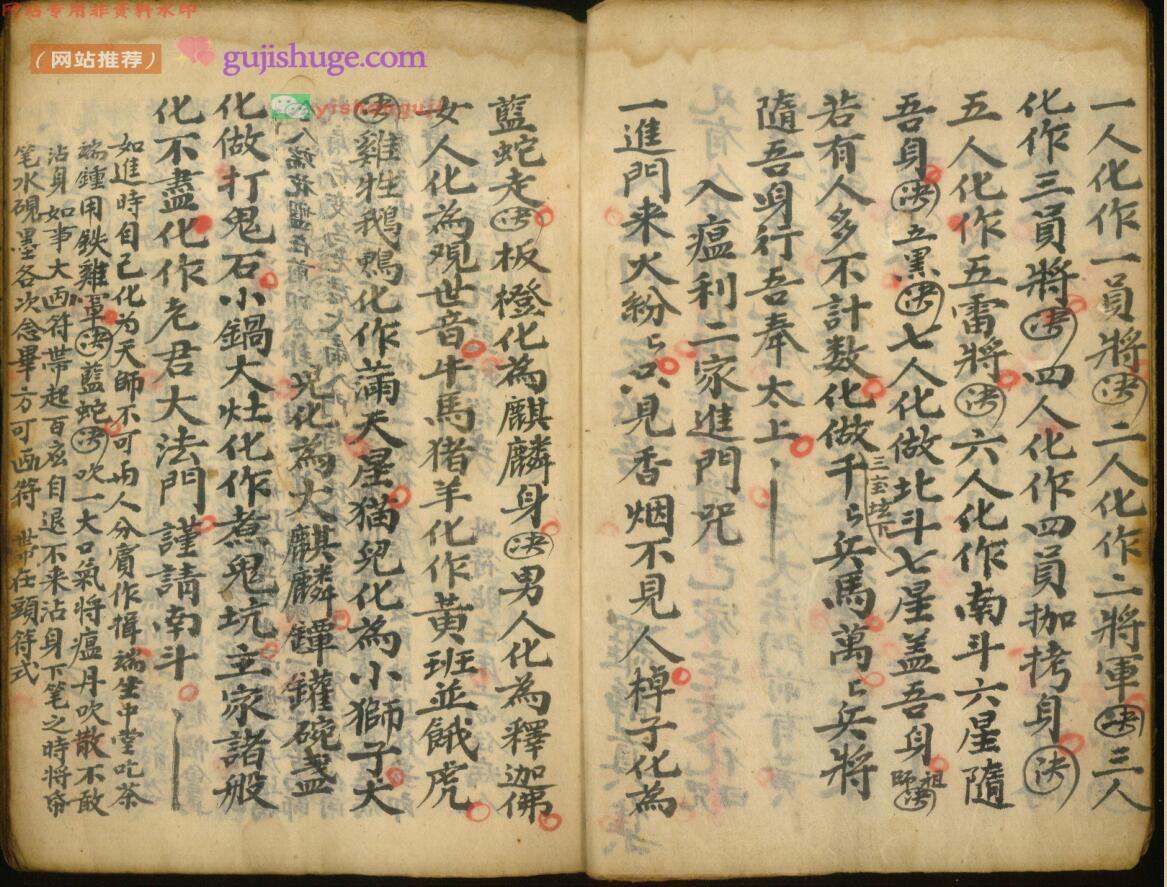 网站专用非资料水印
(网站推荐)
gujishuge.com
yishanguji
一人化作一員將决二人化作二將軍决三人
化作三員將决四人化作四員枷拷身决
五人化作五雷將决六人化作南斗六星隨
吾身决五黑决七人化做北斗七星盖吾身祖師决
若有人多不計数化做千々兵馬萬々兵將
隨吾身行吾奉太上
入瘟利二家進門咒
一進門来火紛々只見香烟不見人棹子化為
藍蛇走决板橙化為麒麟身决男人化為釋迦佛
女人化為观世音牛馬猪羊化作黃班並餓虎
决雞牲鵝鴨化作滿天星猫兒化為小獅子犬
兒化為大麒麟罈罐碗盏
化做打鬼石小鍋大灶化作煮鬼坑主家諸般
化不盡化作老君大法門謹請南斗
如進時自己化为天師不可两人分賓作揖端坐中堂吃茶
端鍾用鉄雞罩决藍蛇决吹一大口氣将瘟丹吹散不敢
沾身如事大画符帶起百症自退不来沾身下笔之時將帋
笔水硯墨各次念畢方可画符帶在頭符式